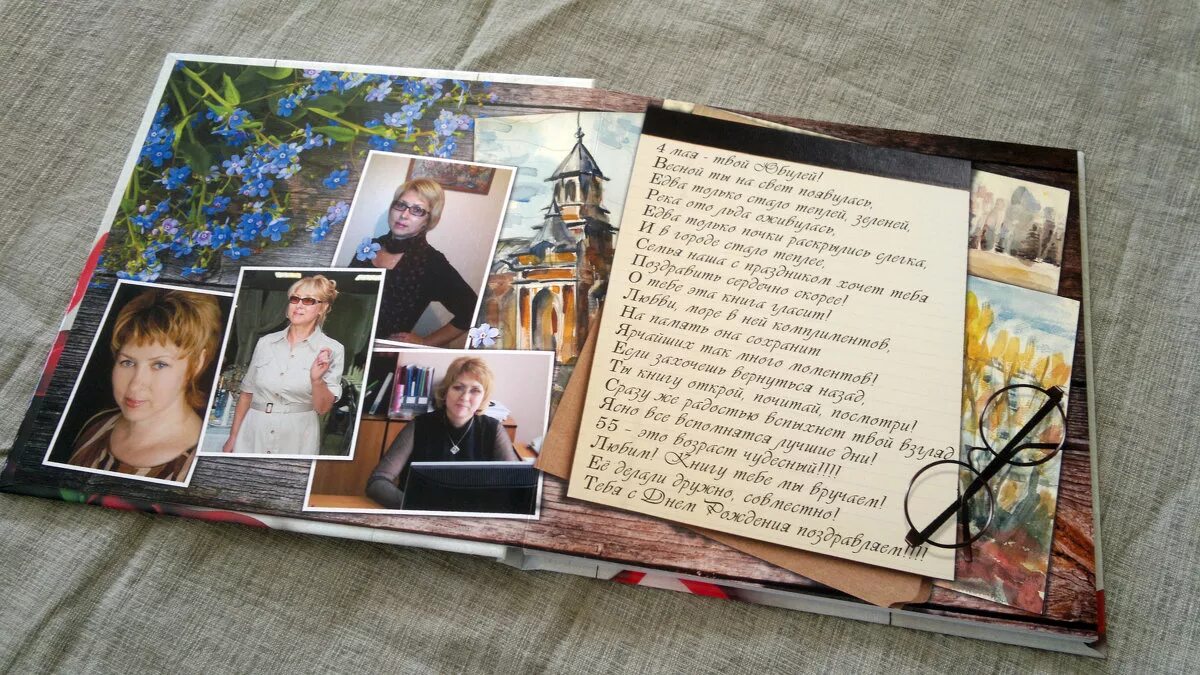 4 мая - твой Юбилей!
Весной ты на свет появилась,
Едва только стало теплей, зеленей,
Река ото льда оживилась,
Едва только почки раскрылись слегка,
И в городе стало теплее,
Семья наша с праздником хочет тебя
Поздравить сердечно скорее!
О тебе эта книга гласит!
Любви, море в ней комплиментов,
На память она сохранит
Ярчайших так много моментов!
Если захочешь вернуться назад,
Ты книгу открой, почитай, посмотри!
Сразу же радостью вспыхнет твой взгляд
Ясно все вспомнятся лучшие дни!
55 - это возраст чудесный!!!!
Любим! Книгу тебе мы вручаем!
Её делали дружно, совместно!
Тебя с Днем Рождения поздравляем!!!!